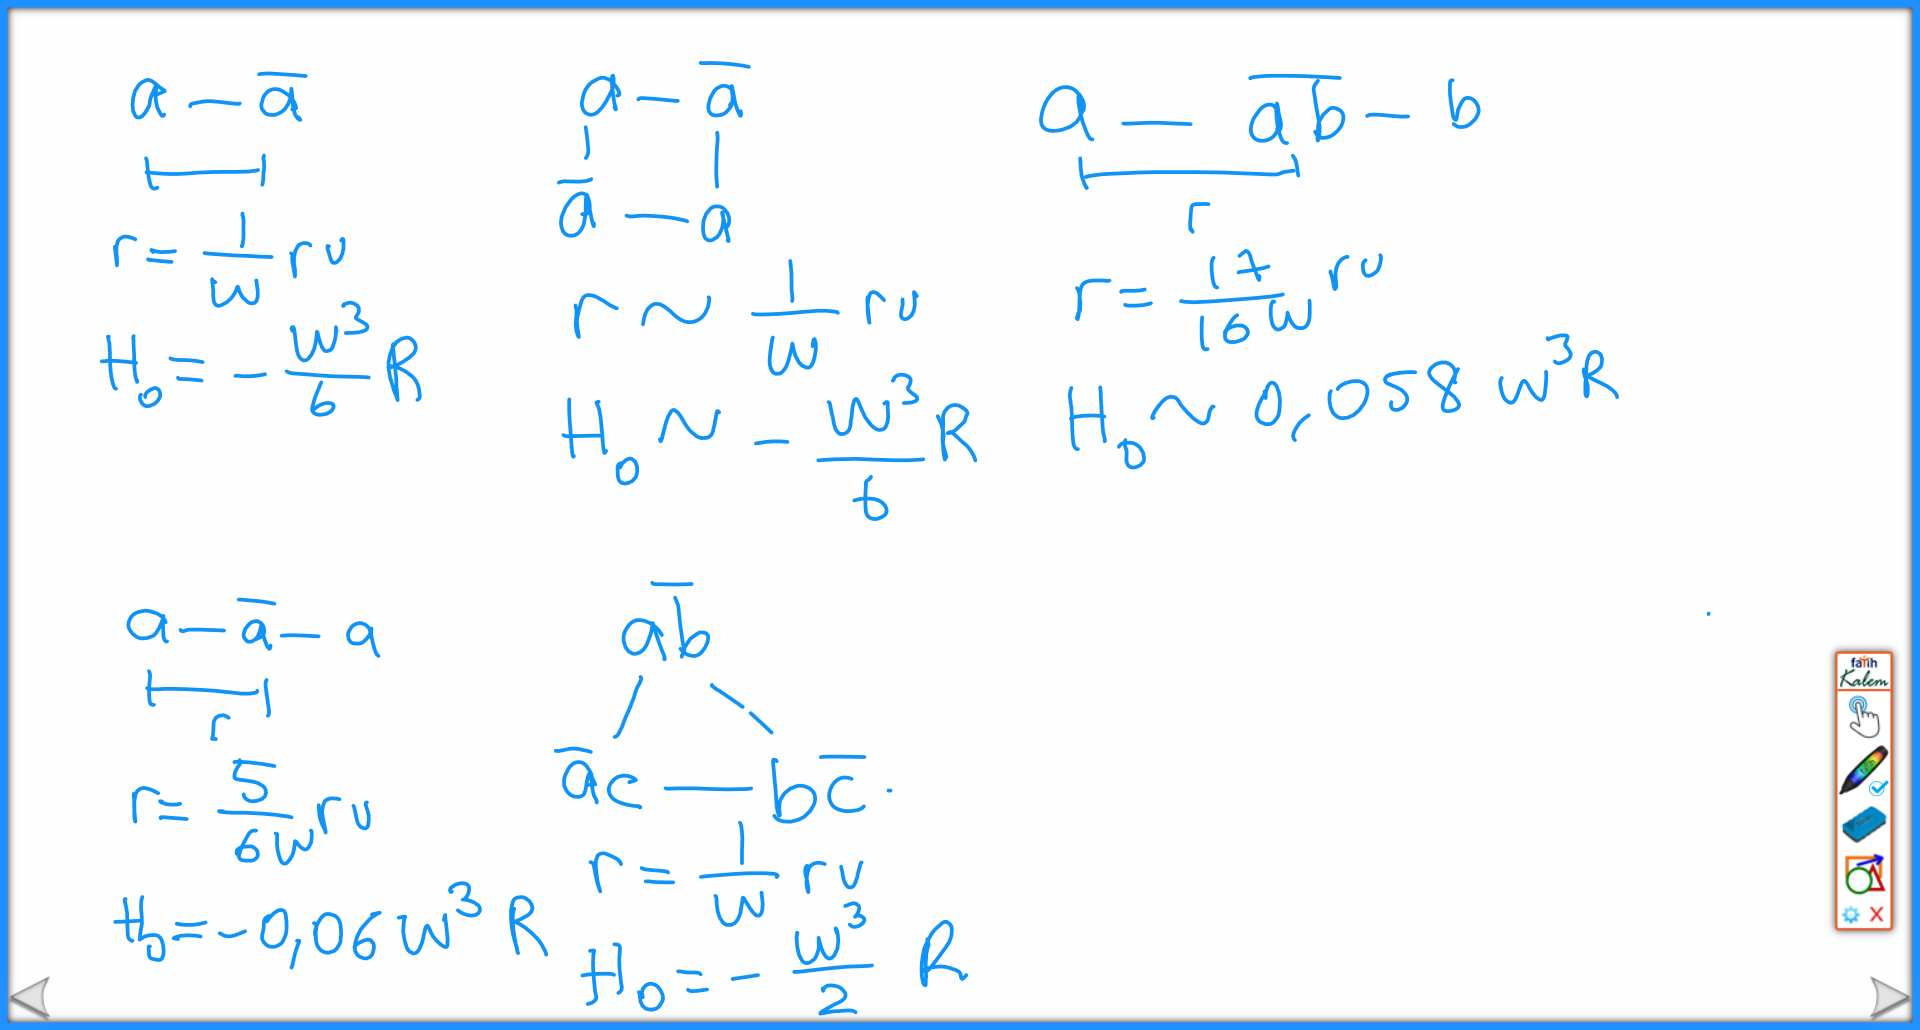 a — a̅
r = 1/w rv
H₀ = - w³/6 R
a — a̅
a̅ — a
r ~ 1/w rv
H₀ ~ - w³/6 R
a — a̅b̅ — b
r
r = 17/16w rv
H₀ ~ 0,058 w³R
a — a̅ — a
r
r = 5/6w rv
H₀ = -0,06 w³ R
ab̅
a̅c — bc̅
r = 1/w rv
H₀ = - w³/2 R
fatih
Kalem